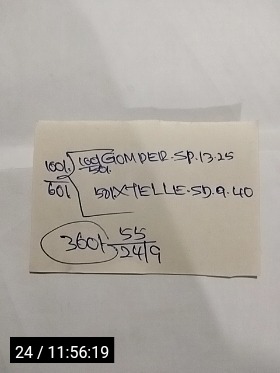 100%. 100% GOMDER.SP.13.25
50%
60% 50% XTELLE.SD.9.40
360% 55
24/9
24 / 11:56:19